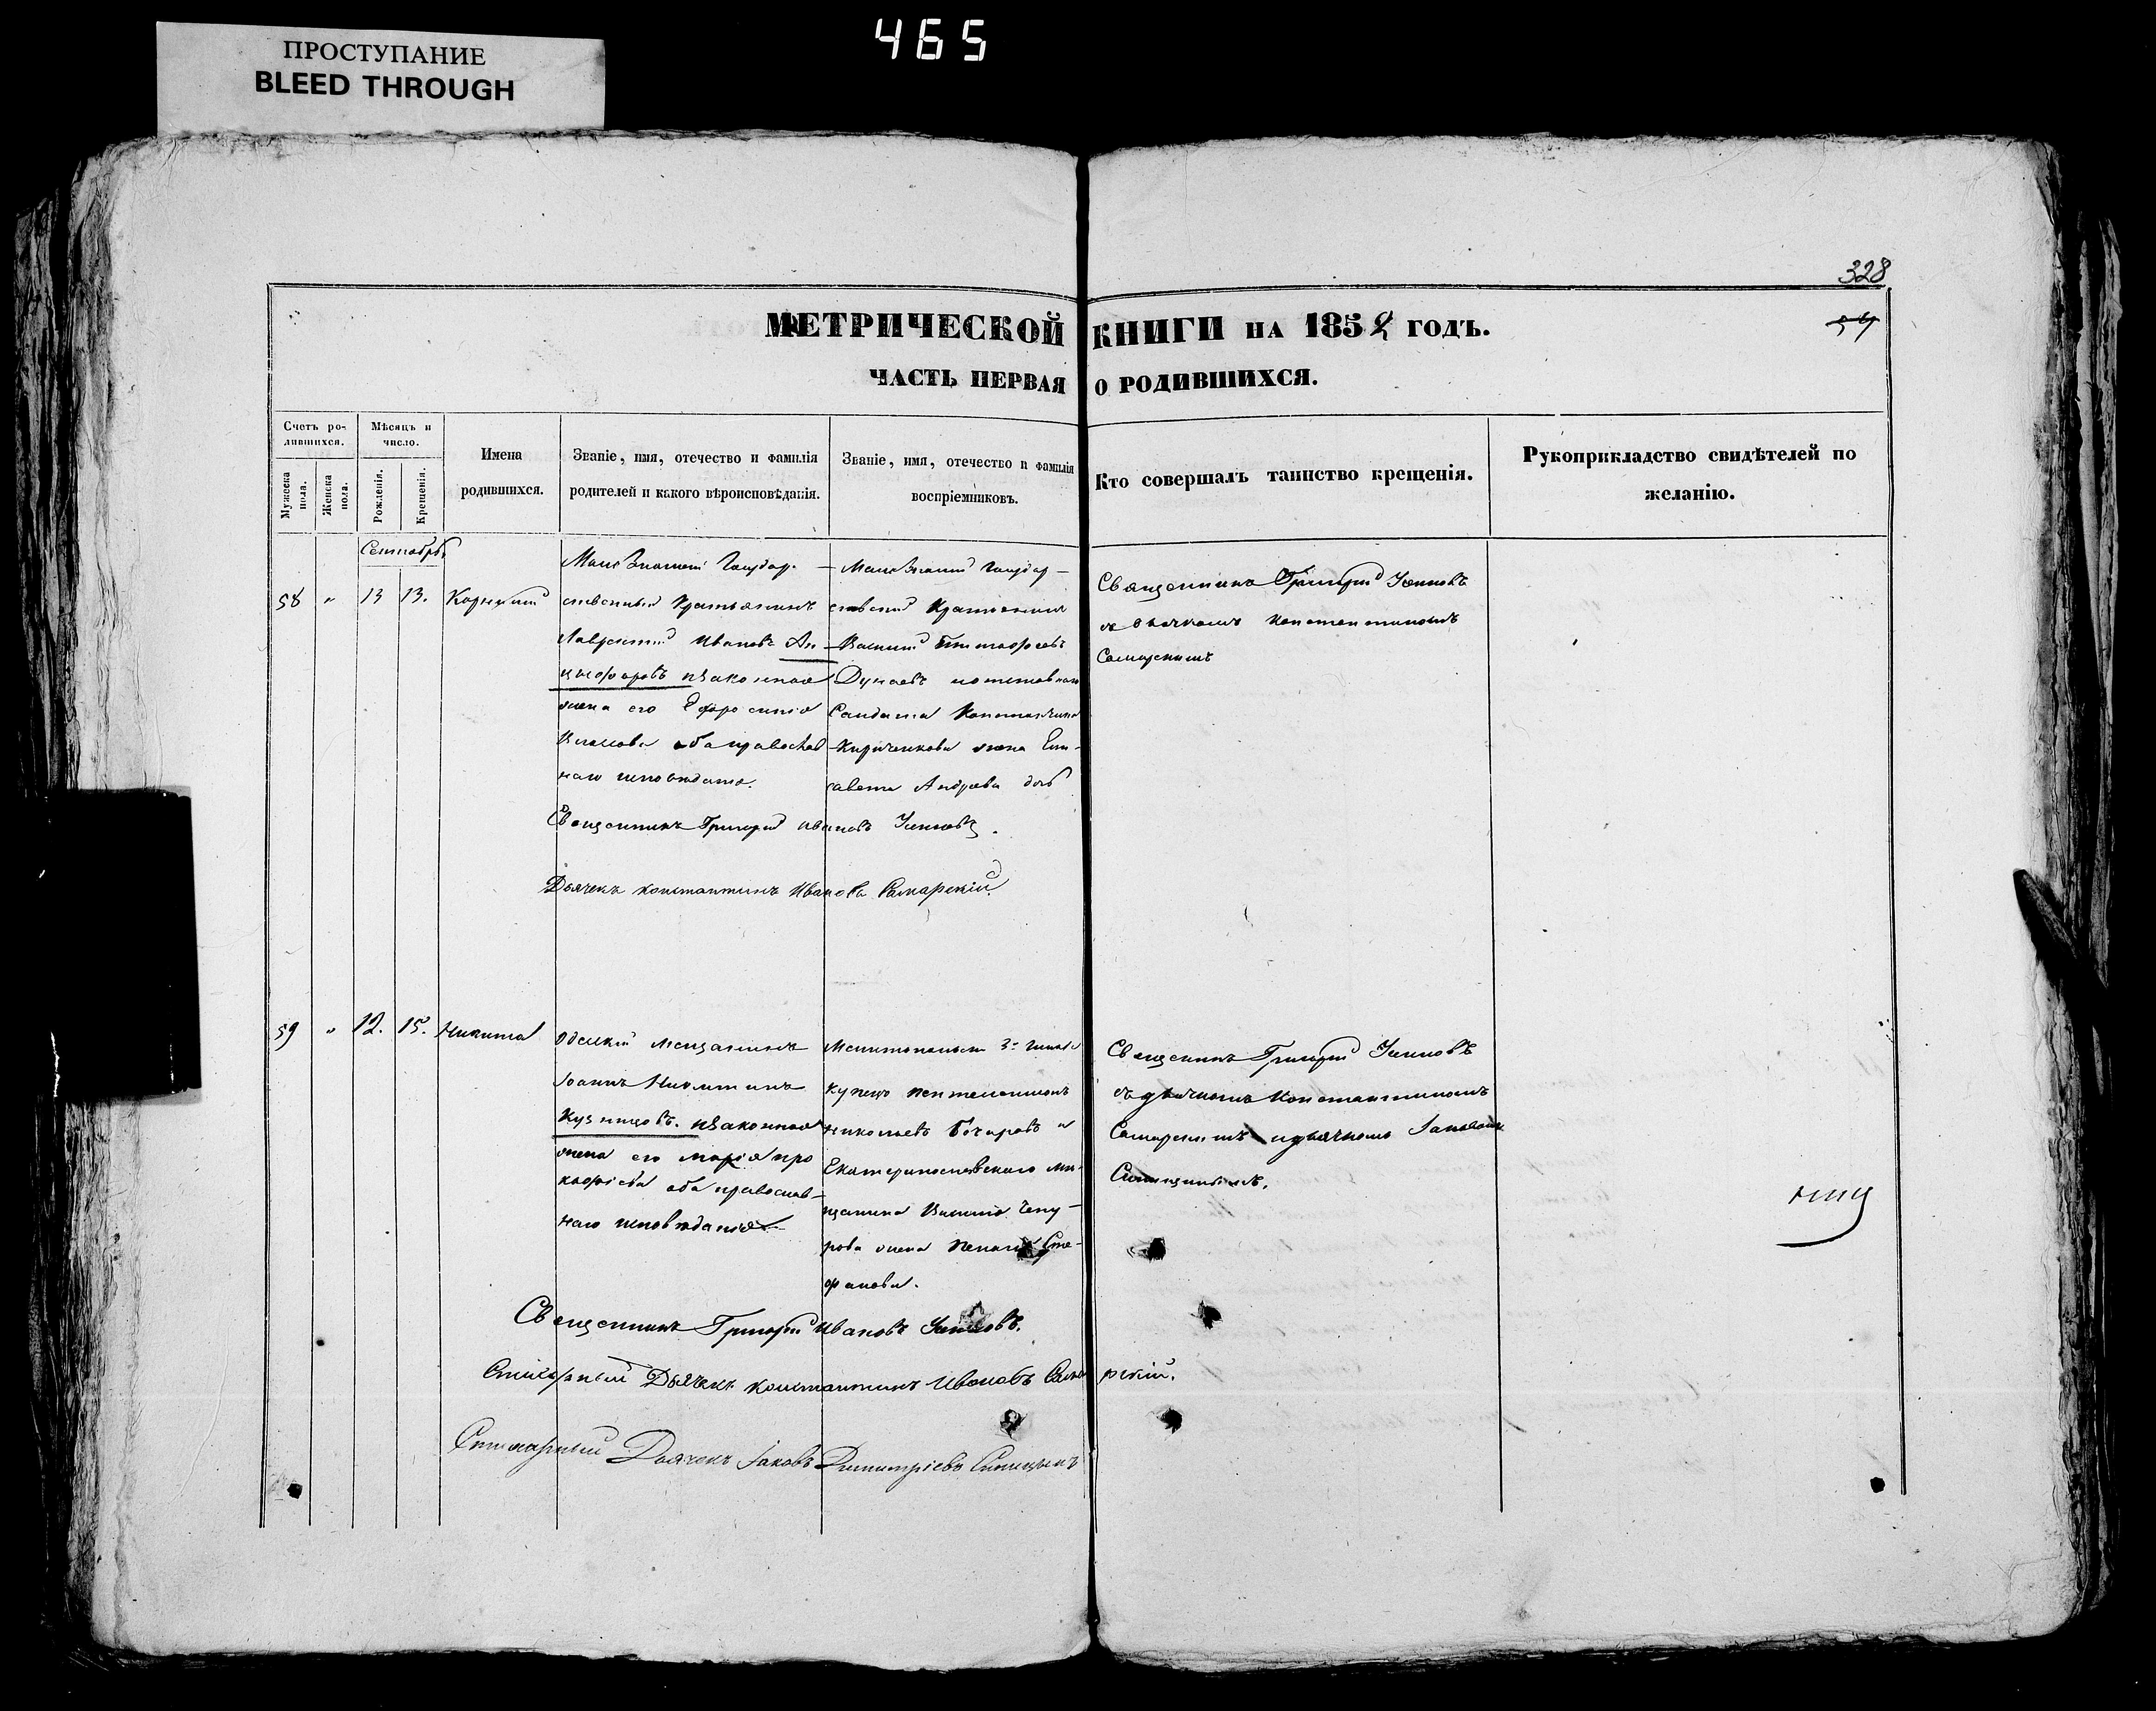 465
ПРОСТУПАНИЕ
BLEED THROUGH
328
МЕТРИЧЕСКОЙ КНИГИ НА 1852 ГОДЪ.
ЧАСТЬ ПЕРВАЯ О РОДИВШИХСЯ.
Счетъ родившихся.
Мужеска пола.
Женска пола.
Мѣсяцъ и число.
Рожденія.
Крещенія.
Имена родившихся.
Званіе, имя, отечество и фамилія родителей и какого вѣроисповѣданія.
Званіе, имя, отечество и фамилія воспріемниковъ.
Кто совершалъ таинство крещенія.
Рукоприкладство свидѣтелей по желанію.
Сентябрь
58 " 13 13. Корнилій
Государ-
ственный Крестьянинъ
Лаврентій Ивановъ Ан-
цыфоровъ изаконная
жена его Ефросинія
оба православ
наго исповѣданія.
Государ-
ственный Крестьянинъ
Василій
Дунаевъ
Солдата Константина
Кириченкова жена Ели-
савета Андреева дочь
Священникъ Григорій
съ дьячкомъ Константиномъ
Самарскимъ
Священникъ Григорій Ивановъ
Дьячекъ Константинъ Ивановъ Самарскій.
59 " 12. 15. Никита
Одескій мещанинъ
Іоаннъ Никитинъ
Кузнецовъ. изаконная
жена его Марія про
кофіева оба православ-
наго исповѣданія
Мелитопольскій 3й гильдіи
купецъ Пентелеимонъ
Николаевъ Бочаровъ и
Екатеринославского ме-
щанина Василія Чепу-
рова жена Сте-
фанова.
Священникъ Григорій
съ дьячкомъ Константиномъ
Самарскимъ идьячкомъ Іаковомъ
Синицынымъ.
Священникъ Григорій Ивановъ
Стихарный Дьячекъ Константинъ Ивановъ Самарскій.
Стихарный Дьячекъ Іаковъ Димитріевъ Синицынъ